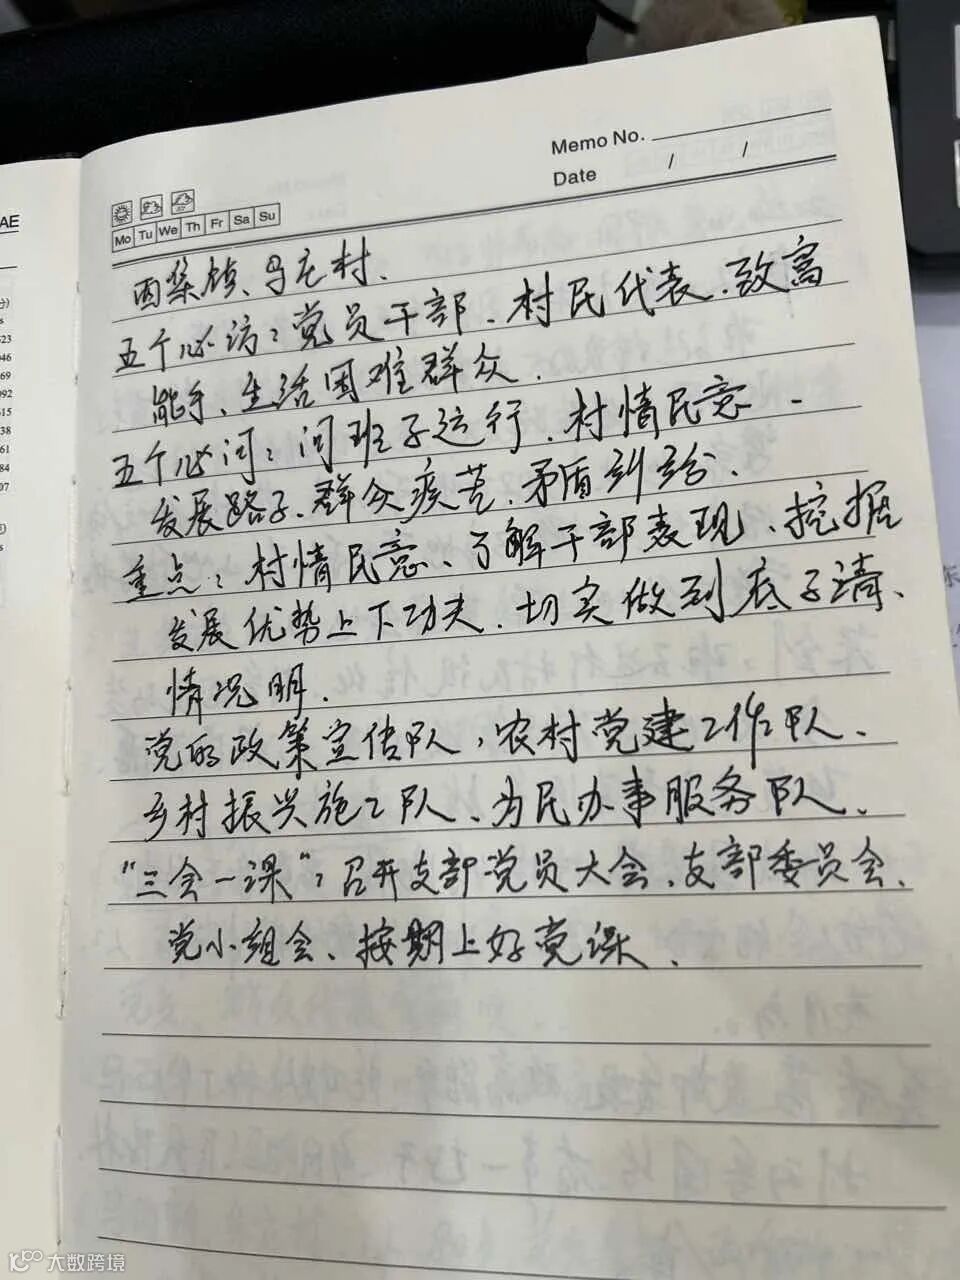 AE
Memo No.
Date / /
Mo Tu We Th Fr Sa Su
西集镇、马庄村.
五个必访：党员干部、村民代表、致富
能手、生活困难群众.
五个必问：问班子运行、村情民意、
发展路子、群众疾苦、矛盾纠纷.
重点：村情民意、了解干部表现、挖掘
发展优势上下功夫、切实做到底子清、
情况明.
党的政策宣传队，农村党建工作队、
乡村振兴施工队、为民办事服务队、
"三会一课"：召开支部党员大会、支部委员会、
党小组会、按期上好党课、
大数跨境